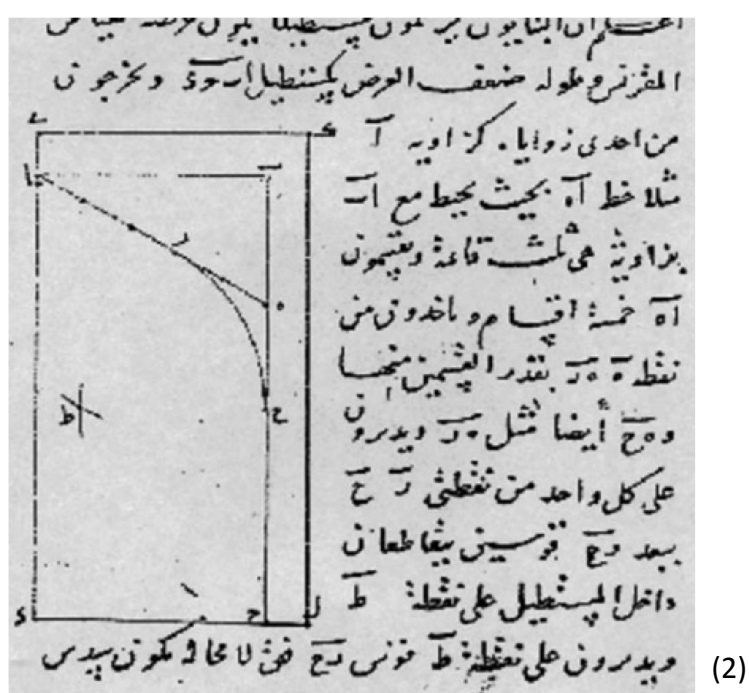 اعلم ان البنايون يرسمون مستطيلا يكون عرضه مقياس
المقرنس وطوله ضعف العرض كمستطيل ويخرجون
من احدى زواياه كزاوية آ
مثلا خط آه بحيث يحيط مع اب
بزاوية هي ثلث قائمة ويقسمون
آه خمسة اقسام وياخذون من
نقطة ه ه ر بقدر القسمين منها
و ه ح أيضا مثل ه ر ويديرون
على كل واحد من نقطتي ر ح
ببعد رح قوسين يتقاطعان
داخل المستطيل على نقطة ط
ويديرون على نقطة ط قوس رح فهي لا محالة يكون سدس
ا
ب
ر
ه
ح
ط
(2)